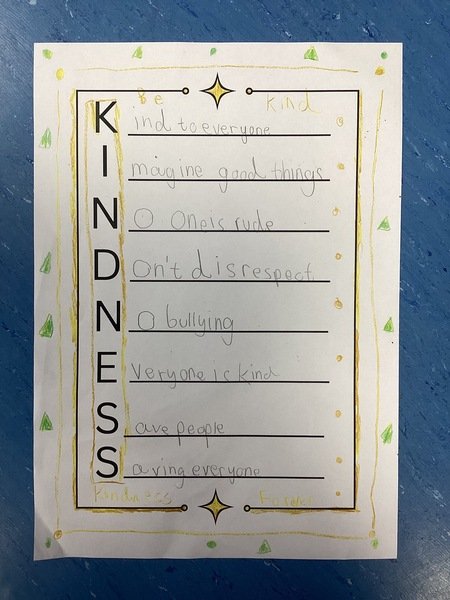 Be Kind
Kind to everyone
Imagine good things
NO One is rude
Don't disrespect
NO bullying
Everyone is kind
Save people
Saving everyone
Kindness Forever